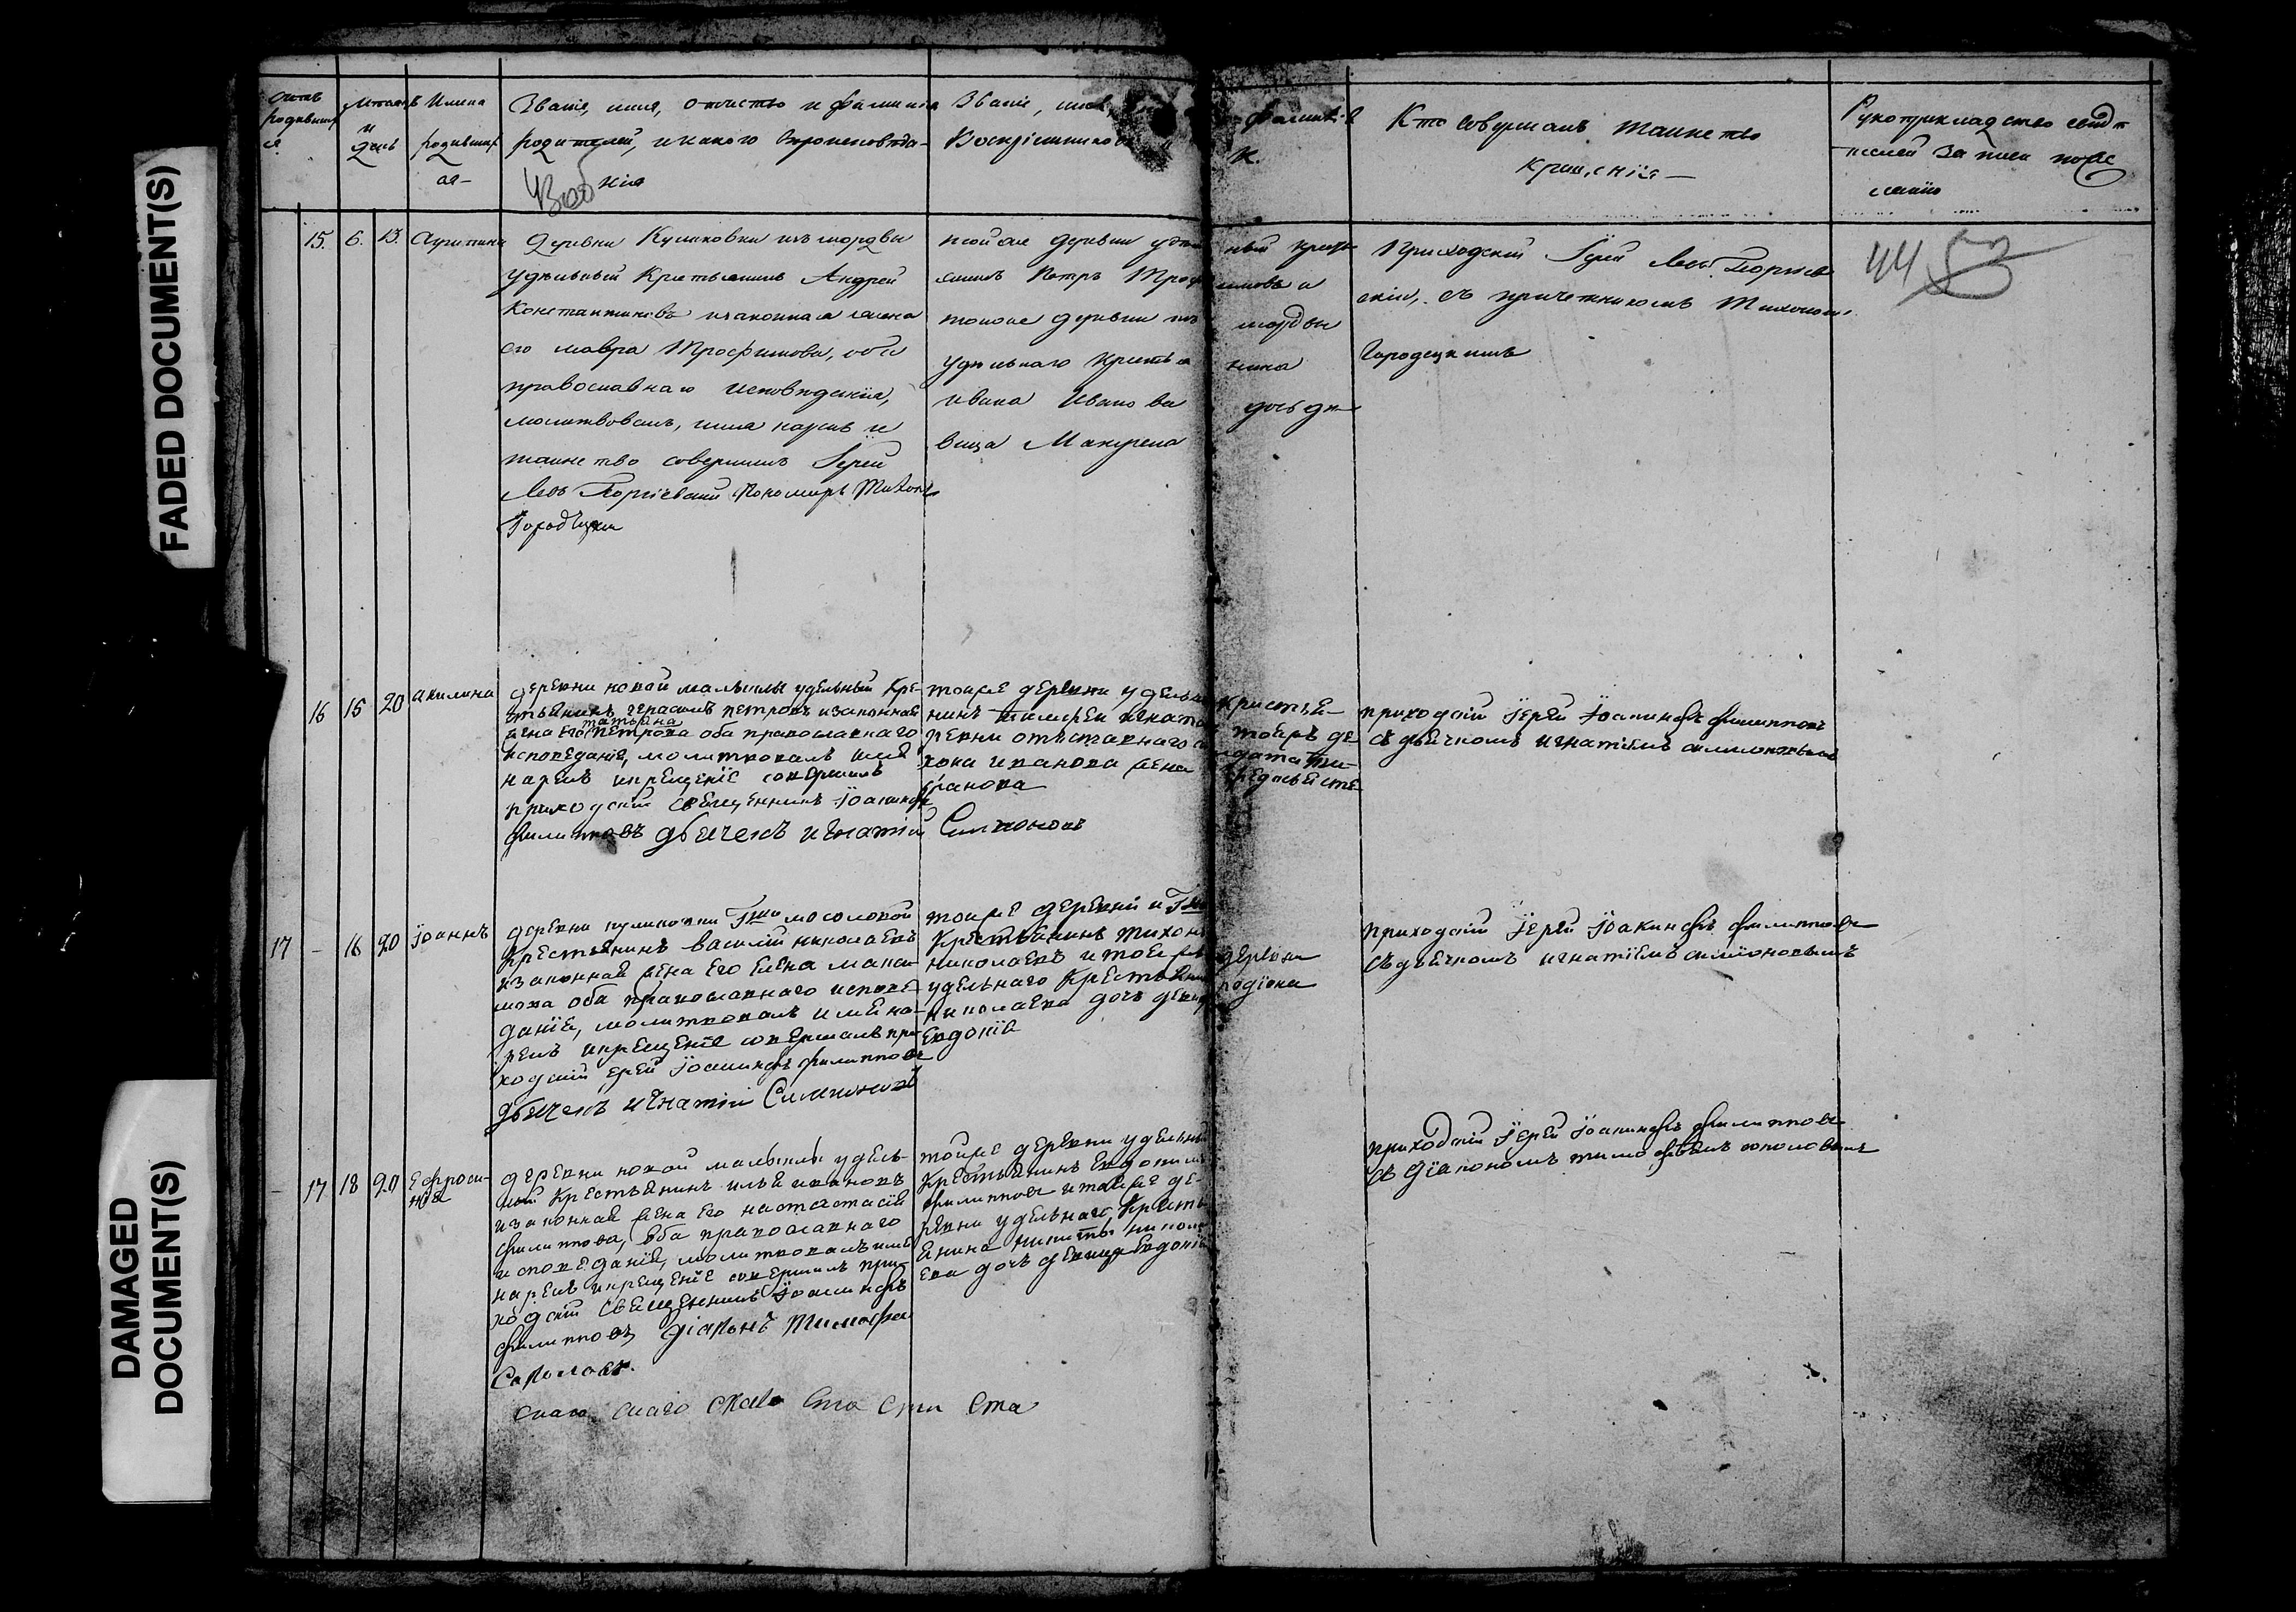 FADED DOCUMENT(S)
DAMAGED
DOCUMENT(S)
Счетъ родившихся
Мѣсяцъ и день
Имена родившихся
Званіе, имя, отчество и фамилія
родителей, и какого вѣроисповѣда-
нія
Званіе, имя,
Воспріемниковъ
фамилія
Кто совершалъ таинство
крещенія
Рукоприкладство свидѣ
телей записи по же
ланію
44
15. 6. 13. Агрипина
Деревни Куликовки изъ мордвы
удѣльный Крестьянинъ Андрей
Константиновъ и законная жена
его Мавра Трофимова, оба
православнаго исповѣданія,
молитвовалъ, имя нарекъ и
таинство совершилъ Іерей
Левъ Георгіевскій Пономарь Тихонъ
Городецкій
той же деревни удѣль ный крест
янинъ Петръ Троф имовъ и
тойже деревни изъ мордвы
удѣльнаго крестья нина
Ивана Иванова дочь дѣ
вица Макрена
Приходскій Іерей Левъ Георгіев
скій, съ причетникомъ Тихономъ
Городецкимъ
16 15 20 Акилина
деревни новой малыклы удельный Кре-
стьянинъ герасимъ петровъ изаконная
жена его татьяна петрова оба православнаго
исповеданія, молитвовалъ имя
нарекъ икрещеніе совершилъ
приходскій священникъ Іоакинфъ
филипповъ дьячекъ игнатій Симионовъ
тойже деревни удельн крестья-
нинъ тимофей игнато тойжъ де
ревни отставнаго с лдата ти-
хона иванова жена федосья сте
фанова
приходскій Іерей Іоакинфъ филипповъ
съ дьячкомъ игнатіемъ симионовымъ
17 – 16 20 Іоаннъ
деревни куликовки Гжи мосоловой
крестьянинъ василій николаевъ
изаконная жена его елена макси-
мова оба православнаго испове-
данія, молитвовалъ имя на-
рекъ икрещеніе совершалъ при-
ходскій ерей Іоакинфъ филипповъ
дьячекъ игнатій Симионовъ
тойже деревни и Гжи
крестьянинъ тихонъ
николаевъ и тойже деревни
удельнаго крестьянина родіона
николаева дочь девица
Евдокія
приходскій Іерей Іоакинфъ филипповъ
съ дьячкомъ игнатіемъ симіоновымъ
– 17 18 20 Ефроси-
нія
деревни новой малыклы удель-
ной Крестьянинъ илья ивановъ
изаконная жена его настасія
филиппова, оба православнаго
исповеданія, молитвовалъ имя
нарекъ икрещеніе совершилъ при-
ходскій священникъ Іоакинфъ
филипповъ діаконъ Тимофей
Соколовъ.
тойже деревни удельный
Крестьянинъ Евдокимъ
филипповъ и тойже де-
ревни удельнаго Крестья
янина никиты никола
ева дочь девица Евдокія
приходскій Іерей Іоакинфъ филипповъ
съ діакономъ тимофеемъ соколовымъ